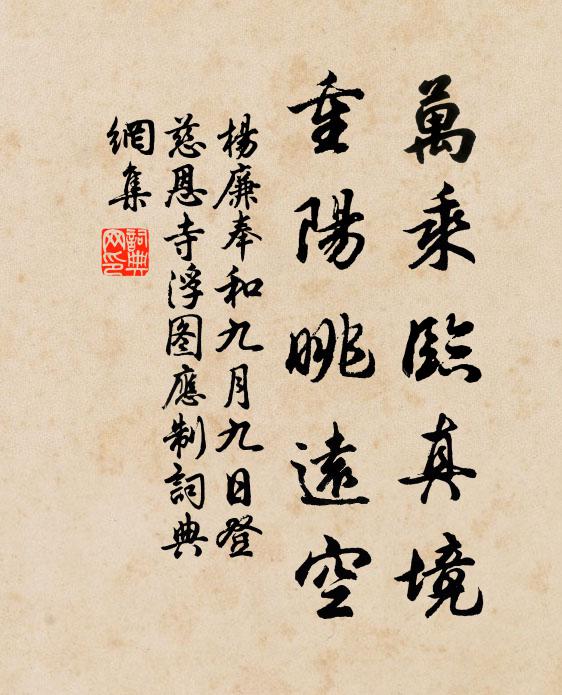 萬乘臨真境
重陽眺遠空
楊廉奉和九月九日登
慈恩寺浮圖應制詞典
網集
詞典網印